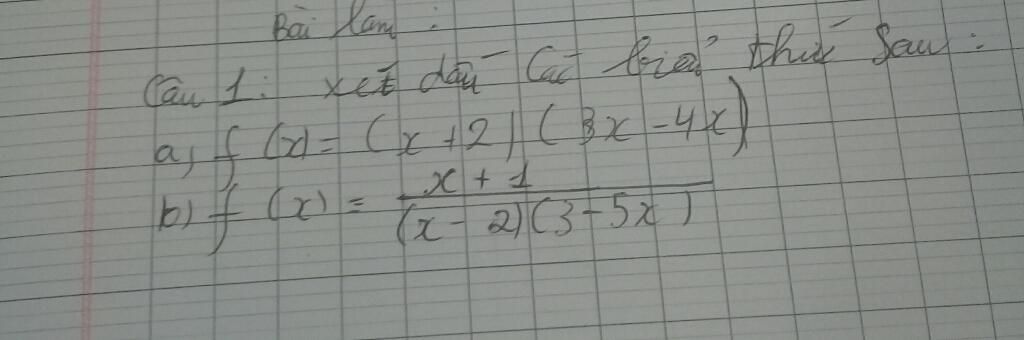 Bài làm :
Câu 1 : xét dấu các biểu thức sau :
a, f (x) = (x + 2) (3x - 4x)
b) f (x) = x + 1 / (x - 2) (3 - 5x)